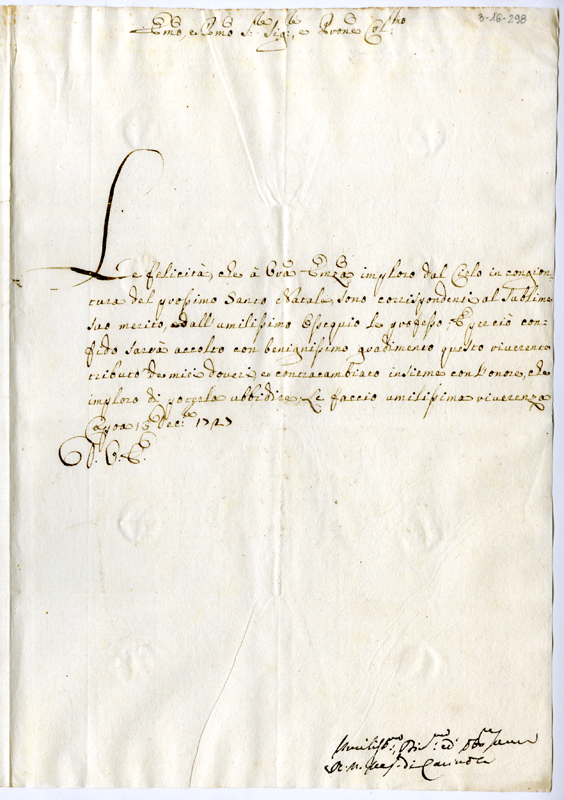 3-16-298
Emo, e Rmo Sig.r, e Prone Col.mo
Le felicità, che à Vra Emza imploro dal Cielo in congion-
tura del prossimo Santo Natale, sono corrispondenti al Sublime
suo merito, e dall'umilissimo Ossequio le professo. E perciò con-
fido sarrà accolto con benignissimo gradimento questo riverente
tributo de miei doveri, e contracambiato insieme con l'onore, che
imploro di poterla ubbidire, e Le faccio umilissima riverenza
Capoa 15 Dec.e 1727
D. V. E.
Umiliss.mo Div.mo ed Obb.mo
Vesc.o di Carinola